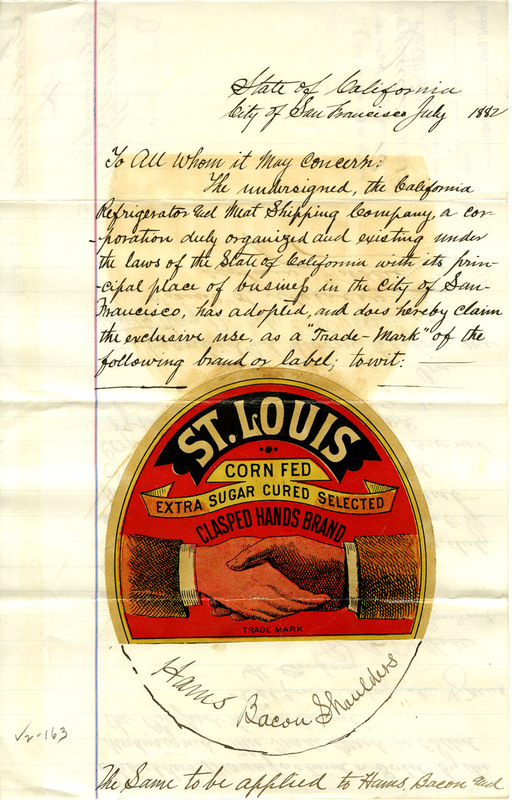 State of California
City of San Francisco July 1882
To All Whom it May Concern:
The undersigned, the California
Refrigerator and Meat Shipping Company, a cor-
-poration duly organized and existing under
the laws of the State of California with its prin-
-cipal place of business in the City of San-
Francisco, has adopted, and does hereby claim
the exclusive use, as a "Trade-Mark" of the
following brand or label; to wit:
ST. LOUIS
CORN FED
EXTRA SUGAR CURED SELECTED
CLASPED HANDS BRAND
TRADE MARK
Hams Bacon Shoulders
V2-163
The Same to be applied to Hams, Bacon and